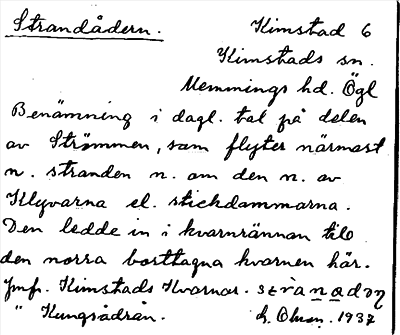 Strandådern. Kimstad 6
Kimstads sn.
Memmings hd. Ögl
Benämning i dagl. tal på delen
av Strömmen, som flyter närmast
n. stranden n. om den n. av
Klyvarna el. stickdammarna.
Den ledde in i kvarnrännan till
den norra borttagna kvarnen här.
Jmf. Kimstads Kvarnar.
" Kungsådran. 1937